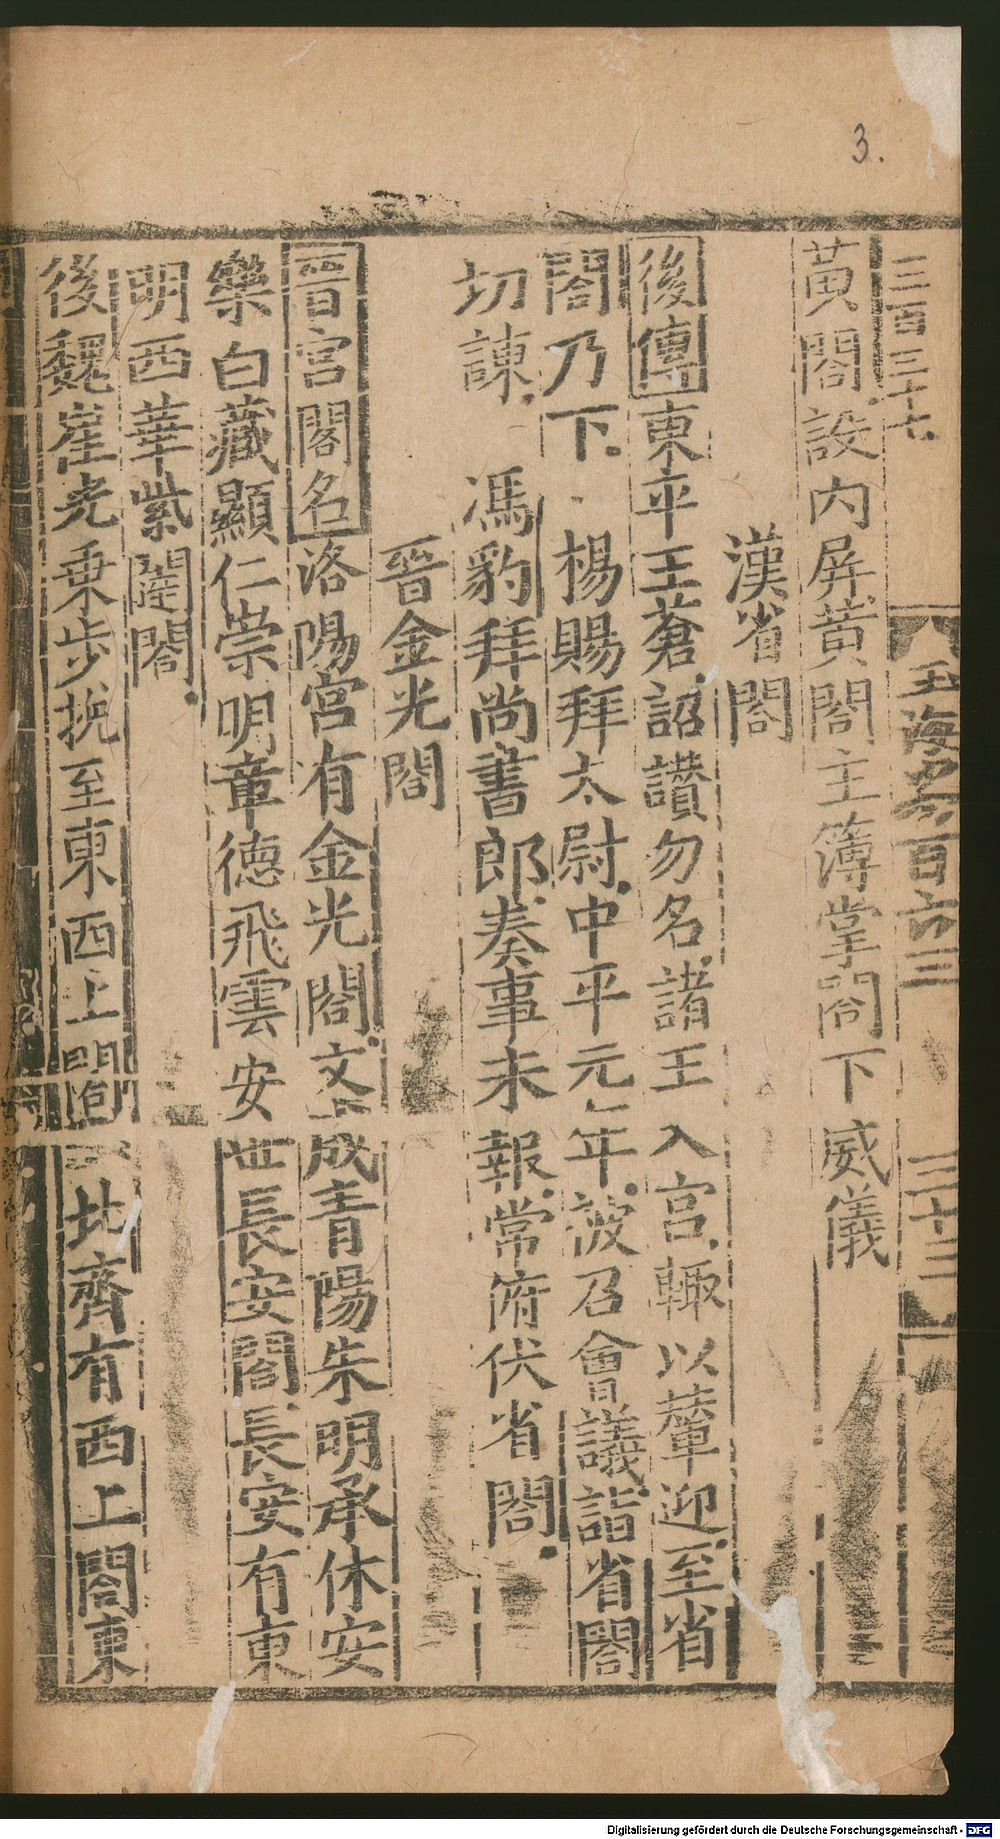 3.
三百三十七
玉海卷百六三
三十三
黃閤設內屏黃閤主簿掌閤下威儀
漢省閤
後傳東平王蒼詔讚勿名諸王入宮輙以輦迎至省
閤乃下 楊賜拜太尉中平元年被召會議詣省閤
切諫 馮豹拜尚書郎奏事未報常俯伏省閤
晉金光閤
晉宮閣名洛陽宮有金光閤文成青陽朱明承休安
樂白藏顯仁崇明章德飛雲安世長安閤長安有東
明西華紫閤
後魏崔光乗步挽至東西上閤 北齊有西上閤東
Digitalisierung gefördert durch die Deutsche Forschungsgemeinschaft - DFG